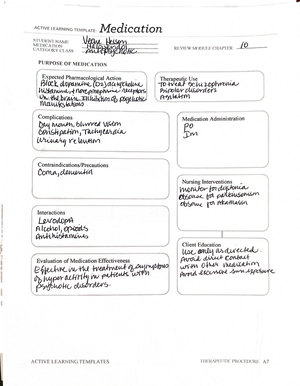 ACTIVE LEARNING TEMPLATE: Medication
STUDENT NAME
MEDICATION Haloperidol
CATEGORY CLASS Antipsychotic
REVIEW MODULE CHAPTER 10
PURPOSE OF MEDICATION
Expected Pharmacological Action
Block dopamine, (D2) acetylcholine
histamine, & norepinephrine receptors
in the brain. Inhibition of psychotic
manifestations
Therapeutic Use
To treat schizophrenia
Bipolar disorders
Complications
Dry mouth, blurred vision
constipation, Tachycardia
urinary retention
Medication Administration
PO
Im
Contraindications/Precautions
Coma, dementia
Nursing Interventions
monitor for dystonia
observe for parkinsonism
observe for akathisia
Interactions
Levodopa
Alcohol, opioids
Antihistamines
Client Education
Use only as directed.
Avoid direct contact
with other medication
Avoid excessive sun exposure
Evaluation of Medication Effectiveness
Effective in the treatment of symptoms
of hyperactivity in patients with
psychotic disorders.
ACTIVE LEARNING TEMPLATES
THERAPEUTIC PROCEDURE A7